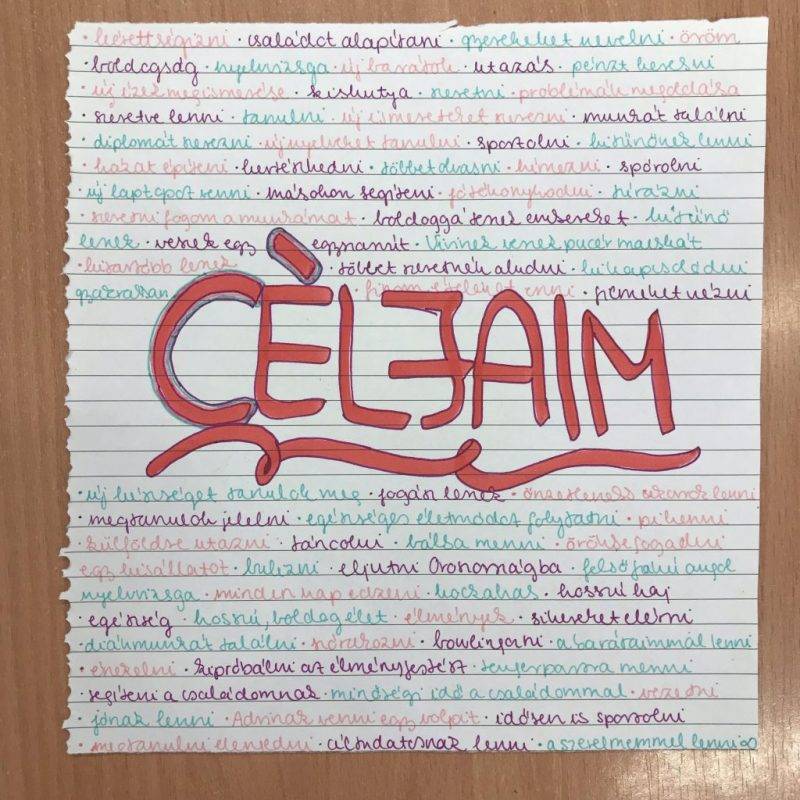 · érettségizni · családot alapítani · gyerekeket nevelni · öröm
boldogság · nyelvvizsga · új barátok · utazás · pénzt keresni
· új ízek megismerése · kiskutya · szeretni · problémák megoldása
· szeretve lenni · tanulni · új ismereteket szerezni · munkát találni
· diplomát szerezni · új nyelveket tanulni · sportolni · kitűnőnek lenni
· házat építeni · kertészkedni · többet olvasni · hímezni · spórolni
· új laptopot venni · másokon segíteni · jótékonykodni · túrázni
· szeretni fogom a munkámat · boldoggá teszek embereket · kitűnő
leszek · veszek egy egynyarit · Vivinek veszek macskát
· kitartóbb leszek · többet szeretnék aludni · kikapcsolódni
gyakrabban · finom ételeket enni · filmeket nézni
CÉLJAIM
· új készséget tanulok meg · jogász leszek · önzetlenebb akarok lenni
· megtanulok jelelni · egészséges életmódot folytatni · pihenni
· külföldre utazni · táncolni · bálba menni · örökbefogadni
egy kisállatot · bulizni · eljutni Oroszországba · felsőfokú angol
nyelvvizsga · minden nap edzeni · kockahas · hosszú haj
egészség · hosszú, boldog élet · élmények · sikereket elérni
· diákmunkát találni · szórakozni · bowlingozni · a barátaimmal lenni
· énekelni · kipróbálni az élményfestést · tengerpartra menni
· segíteni a családomnak · minőségi idő a családommal · vezetni
· jónak lenni · Adrinak venni egy volpit · idősen is sportolni
· megtanulni elengedni · áldozatosnak lenni · a szerelmemmel lenni ∞